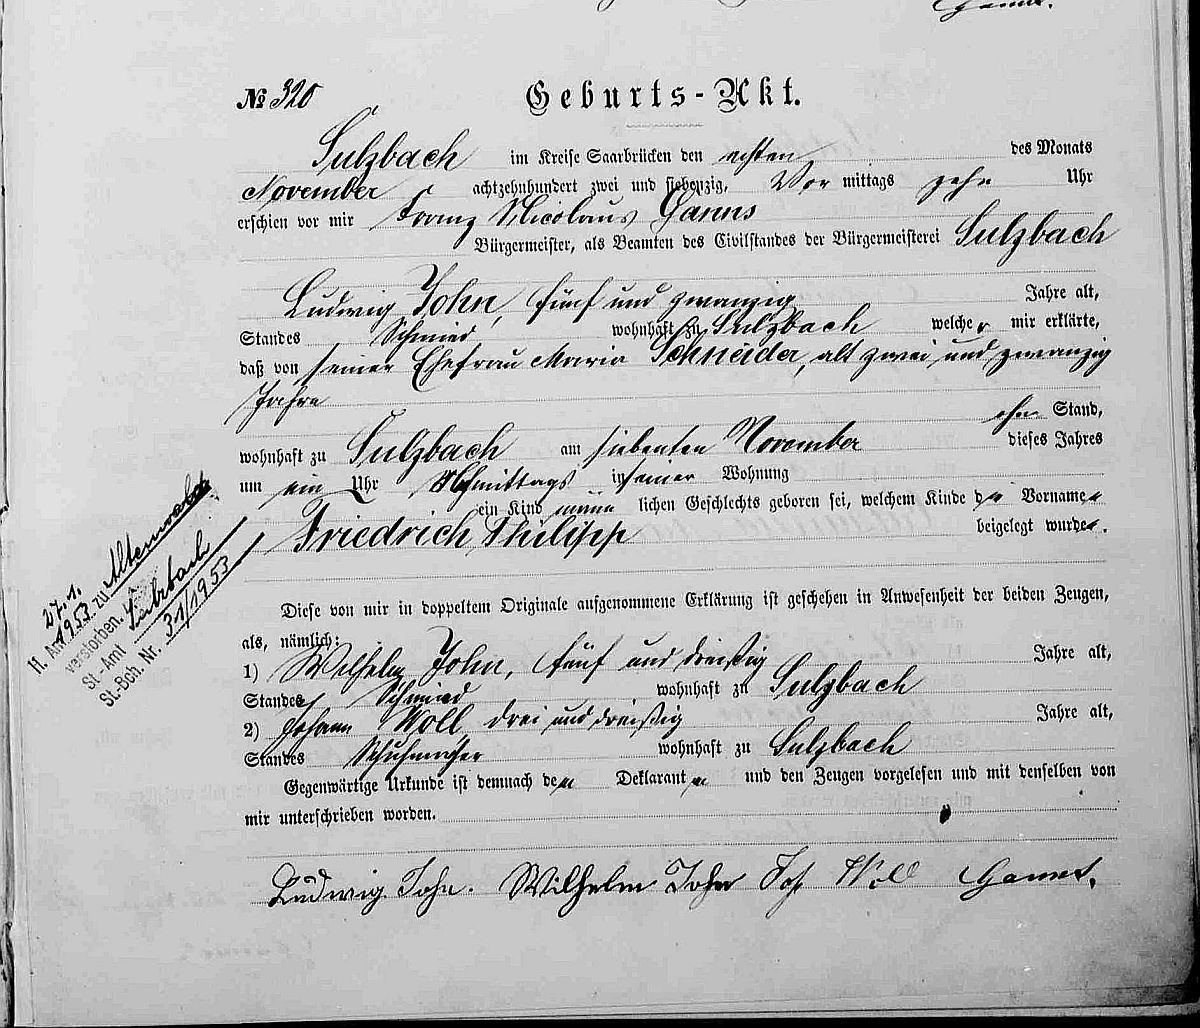 № 320 Geburts-Akt.
Sulzbach im Kreise Saarbrücken den achten des Monats
November achtzehnhundert zwei und siebenzig, Vor mittags zehn Uhr
erschien vor mir Franz Nicolaus Ganns
Bürgermeister, als Beamten des Civilstandes der Bürgermeisterei Sulzbach
Ludwig John, fünf und zwanzig Jahre alt,
Standes Schmied wohnhaft zu Sulzbach welcher mir erklärte,
daß von seiner Ehefrau Maria Schneider, alt zwei und zwanzig
Jahre
ohne Stand,
wohnhaft zu Sulzbach am siebenten November dieses Jahres
um ein Uhr mittags in seiner Wohnung
ein Kind männlichen Geschlechts geboren sei, welchem Kinde die Vornamen
Friedrich Philipp beigelegt wurden.
27.1.
H. Am 1953 zu
verstorben.
St.-Amt Sulzbach
St.-Bch. Nr. 31/1953
Diese von mir in doppeltem Originale aufgenommene Erklärung ist geschehen in Anwesenheit der beiden Zeugen,
als, nämlich:
1) Wilhelm John, fünf und dreißig Jahre alt,
Standes Schmied wohnhaft zu Sulzbach
2) Johann Woll drei und dreißig Jahre alt,
Standes Schuhmacher wohnhaft zu Sulzbach
Gegenwärtige Urkunde ist demnach den Deklaranten und den Zeugen vorgelesen und mit denselben von
mir unterschrieben worden.
Ludwig John. Wilhelm John Joh Woll